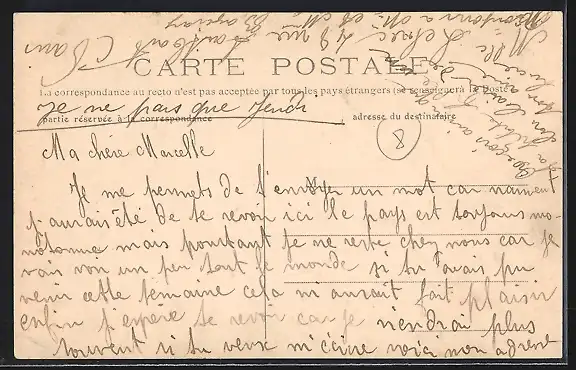 CARTE POSTALE
La correspondance au recto n'est pas acceptée par tous les pays étrangers (se renseigner à la Poste)
Je ne pars que Jeudi
partie réservée à la correspondance
adresse du destinataire
8
Ma chère Marcelle
M
Je me permets de t'envoyer un mot car vraiment
j'aurais été de te revoir ici le pays est toujours mo-
notonne mais pourtant je ne reste chez nous car je
vais voir un peu tout le monde si tu avais pu
venir cette semaine cela m'aurait fait plaisir
enfin j'espère te revoir car je viendrai plus
souvent si tu veux m'écrire voici mon adresse
Melle
48 rue
Paris